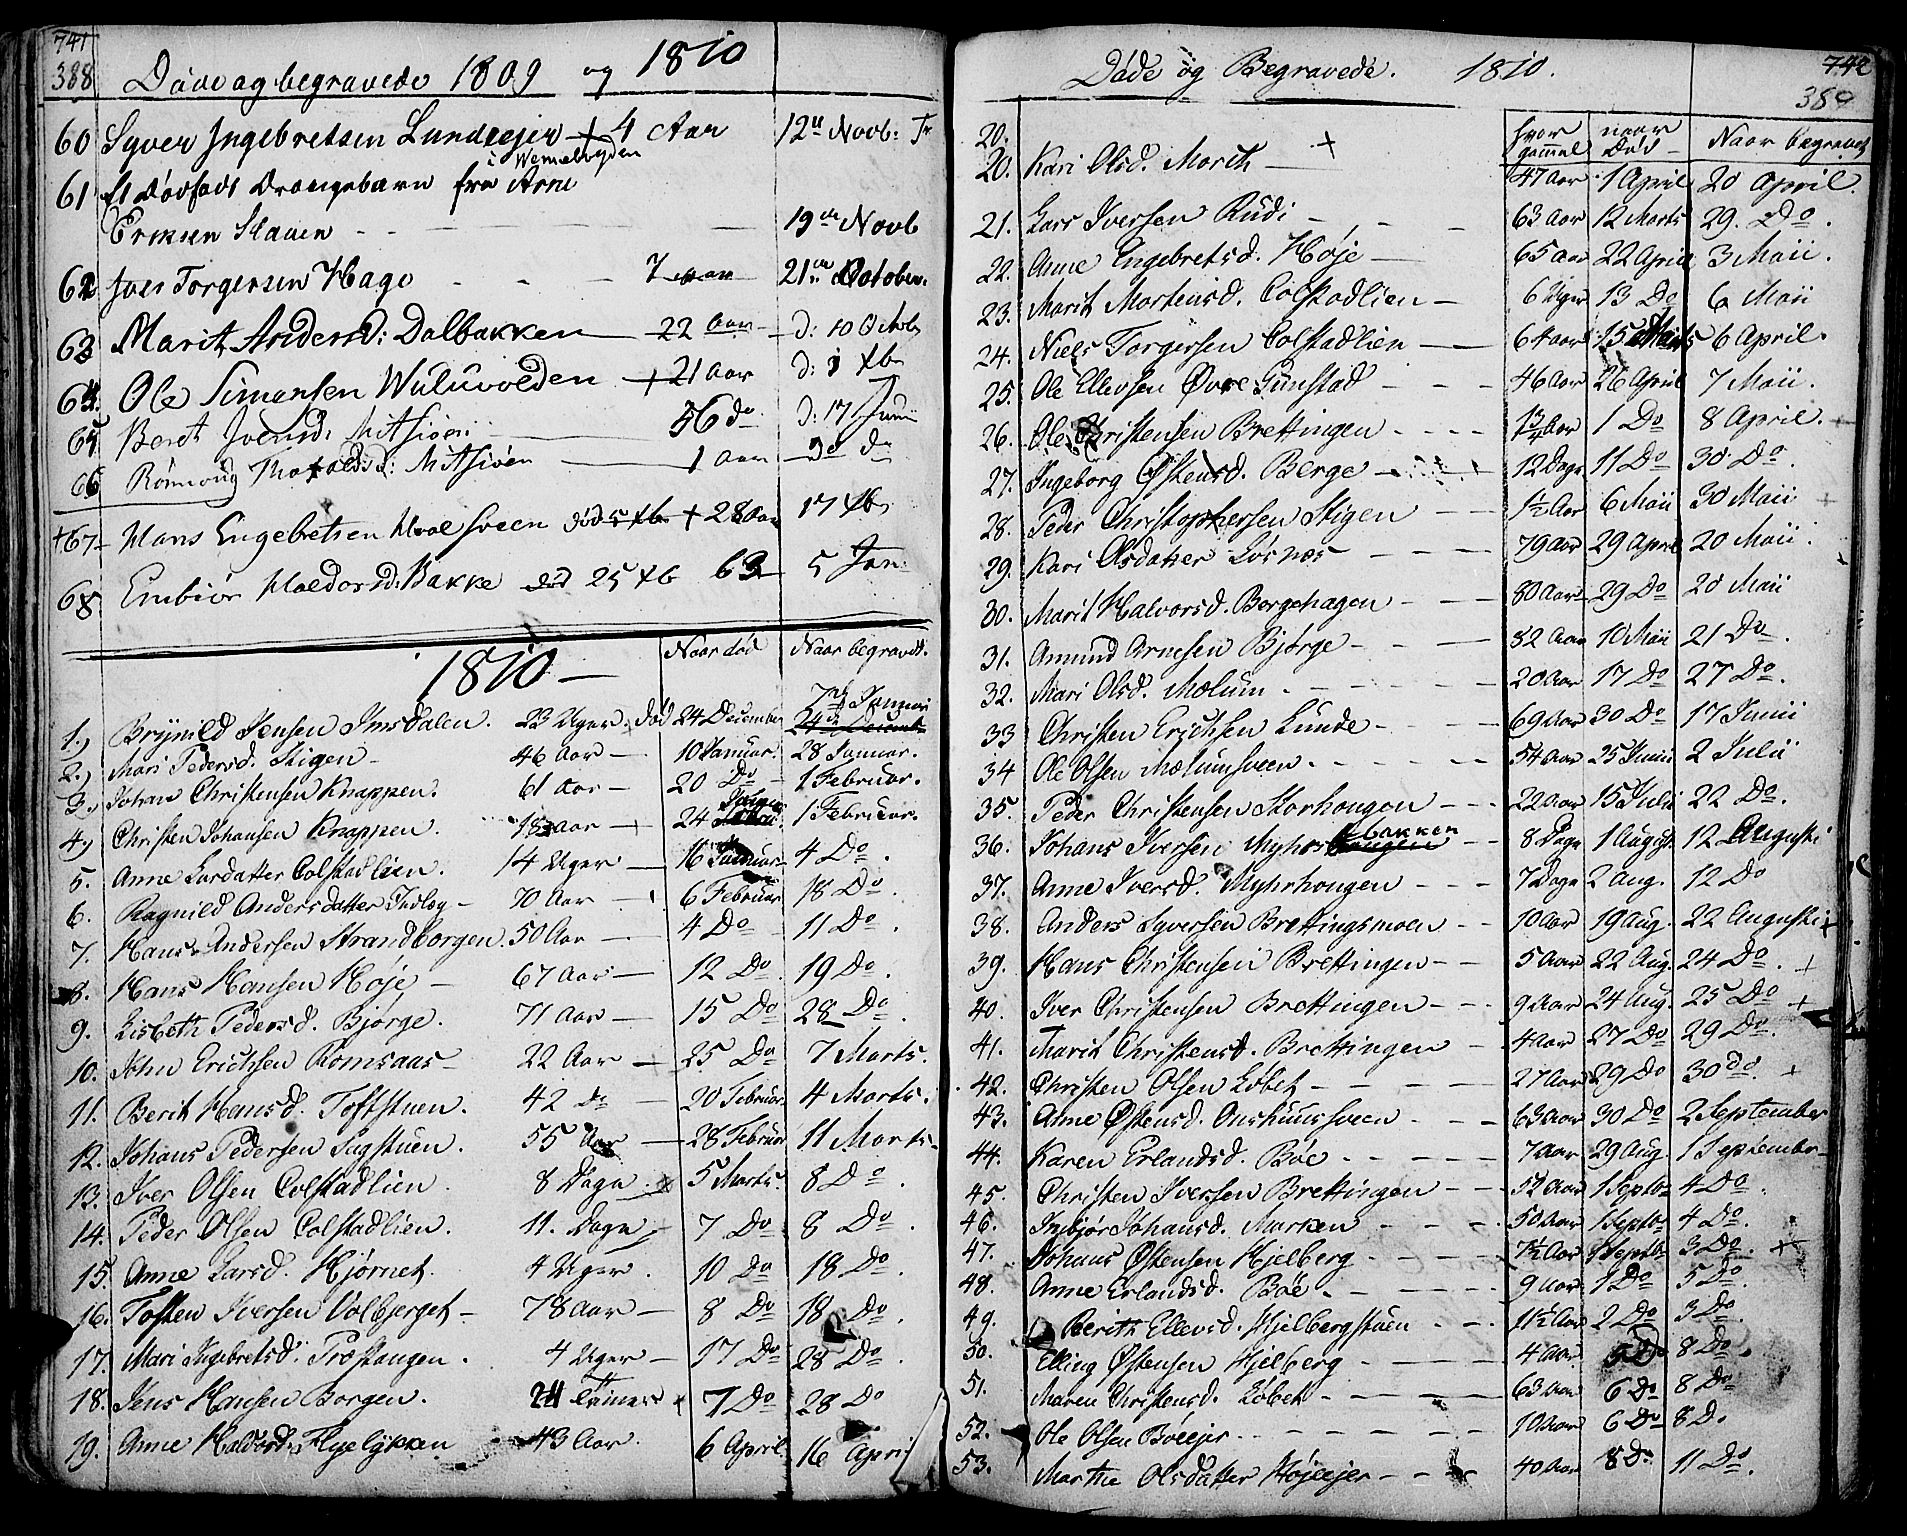 741
388 Døde og begravede 1809 og 1810
60 Syver Ingebretsen Lundeejer + 4 Aar 12te Novb:
61 Et dødfødt Drengebarn fra Arne
Eriksen Slaaen - - - 19de Novb
62 Iver Torgersen Hage - - 7 Aar 21de October.
63 Marit Andersd: Dalbakken 22 Aar d: 10 Octob
64. Ole Simensen Wuluvolden + 21 Aar D: 1 Xbr
65 Berit Iversd: 56 do D: 17 Junii
66 Rønnoug 1 Aar do do
+67 Hans Engebretsen Moesveen død 5 Xbr + 28 Aar 17 Xbr
68 Embiør Haldorsd: Bakke død 25 Xb 63 5 Jan:
1810 - Naar død Naar begravet.
1.) Brynild Jensen Imsdalen. 23 Uger. død 24 December 7de Januari
2.) Mari Pedersd. Stigen - 46 Aar - 10 Januar. 28 Januar.
3.) Johan Christensen Knappen. 61 Aar - 20 Do - 1 Februar.
4.) Christen Johansen Knappen. 18 Aar - 24 Januar 1 Februar.
5. Anne Larsdatter Colstadlien. 14 Uger - 16 Januar 4 Do.
6. Ragnild Andersdatter - 70 Aar - 6 Februar 18 Do.
7. Hans Andersen Strandborgen. 50 Aar - 4 Do - 11 Do.
8. Hans Hansen Høje - 67 Aar - 12 Do. 19 Do.
9. Lisbeth Pedersd. Bjørge. 71 Aar - 15 Do 28 Do.
10. John Erichsen Romsaas - 22 Aar - 25 Do 7 Marts.
11. Berit Hansd. Toftstuen. 42 Do - 20 Februar. 4 Marts.
12. Johans Pedersen Sagstuen. 55 Aar - 28 Februar 11 Marts.
13. Iver Olsen Colstadlien. 8 Dage. 5 Marts. 8 Do.
14. Peder Olsen Colstadlien. 11. Dage 7 Do 8 Do.
15. Anne Larsd. Hjørnet. 4 Uger. 10 Do 18 Do.
16. Tosten Iversen Volbjerget - 78 Aar - 8 Do 18 Do.
17. Mari Ingebretsd. Træstangen. 4 Uger - 17 Do 28 Do.
18. Jens Hansen Borgen. 24 Timer 7 Do 28 Do
19. Anne Haldorsd: Flyelykken 43 Aar. 6 April 16 April
742
389
Døde og Begravede. 1810.
20. hvor gammel naar Død - Naar begravet
20. Kari Olsd. Morth - + 47 Aar 1 April 20 April.
21. Lars Iversen Rudi - - - 63 Aar 12 Marts 29. Do.
22. Anne Engebretsd. Høje - 65 Aar 22 April 3 Maii.
23. Marit Mortensd. Colstadlien - 6 Uger 13 Do 6 Maii
24. Niels Torgersen Colstadlien - 64 Aar 15 Marts 6 April.
25. Ole Ellevsen Øvre Gunstad - - - 46 Aar 26 April 7 Maii.
26. Ole Christensen Brettingen - - - - Aar 1 Do 8 April. +
27. Ingeborg Østensd. Berge - 12 Dage 11 Do 30 Do.
28. Peder Christophersen Stigen - - 1½ Aar 6 Maii 30 Maii
29. Kari Olsdatter Løsnæs - - - - 79 Aar 29 April 20 Maii.
30. Marit Halvorsd. Bergehagen - - - 80 Aar 29 Do 20 Maii
31. Amund Arnesen Bjørge - - - 82 Aar 10 Maii 21 Do.
32. Mari Olsd. Mælum. - - - - 20 Aar 17 Do 27 Do.
33 Christen Erichsen Lunde - - - 69 Aar 30 Do 17 Junii
34 Ole Olsen Mælumsveen. - - - - 54 Aar 25 Junii 2 Julii
35. Peder Christensen Storhougen - - - 22 Aar 15 Julii 22 Do.
36. Johans Iversen Myhrbakken - - 8 Dage 1 August. 12 Augusti
37. Anne Iversd. Myhrhougen - - - 7 Dage 2 Aug. 12 Do
38. Anders Syversen Brettingsmoen - - 10 Aar 19 Aug. 22 Augusti +
39. Hans Christensen Brettingen - - 5 Aar 22 Aug. 24 Do. +
40. Iver Christensen Brettingen - - - 9 Aar 24 Aug. 25 Do +
41. Marit Christensd. Brettingen - - 4 Aar 27 Do 29 Do.
42. Christen Olsen Løbet - - - - 27 Aar 29 Do 30 do. +
43. Anne Østensd. Onshuussveen - - - 63 Aar 30 Do 2 September
44. Karen Erlandsd. Bøe - - - - - 7 Aar 29 Aug. 1 September
45. Christen Iversen Brettingen - - - 52 Aar 1 Septb 4 Do.
46. Inbjør Johansd. Marken - - - - 50 Aar 1 Septbr 4 Do.
47. Johans Østensen Hjelberg - - - - 7½ Aar Septb 3 Do. +
48. Anne Erlandsd. Bøe - - - - - 9 Aar 1 Do 5 Do.
49. Berith Ellevsd. Hjelbergstuen - - - 11½ Aar 2 Do 3 Do.
50. Elling Østensen Hjelberg - - - - 4 Aar 5 Do 8 Do.
51. Maren Christensd. Løbet - - - - 63 Aar 6 Do 8 Do
52. Ole Olsen Bøeejer - - - - - - 10 Aar 6 Do 8 D.
53. Marthe Olsdatter Højeejer - - - 40 Aar 8 Do 11 Do.